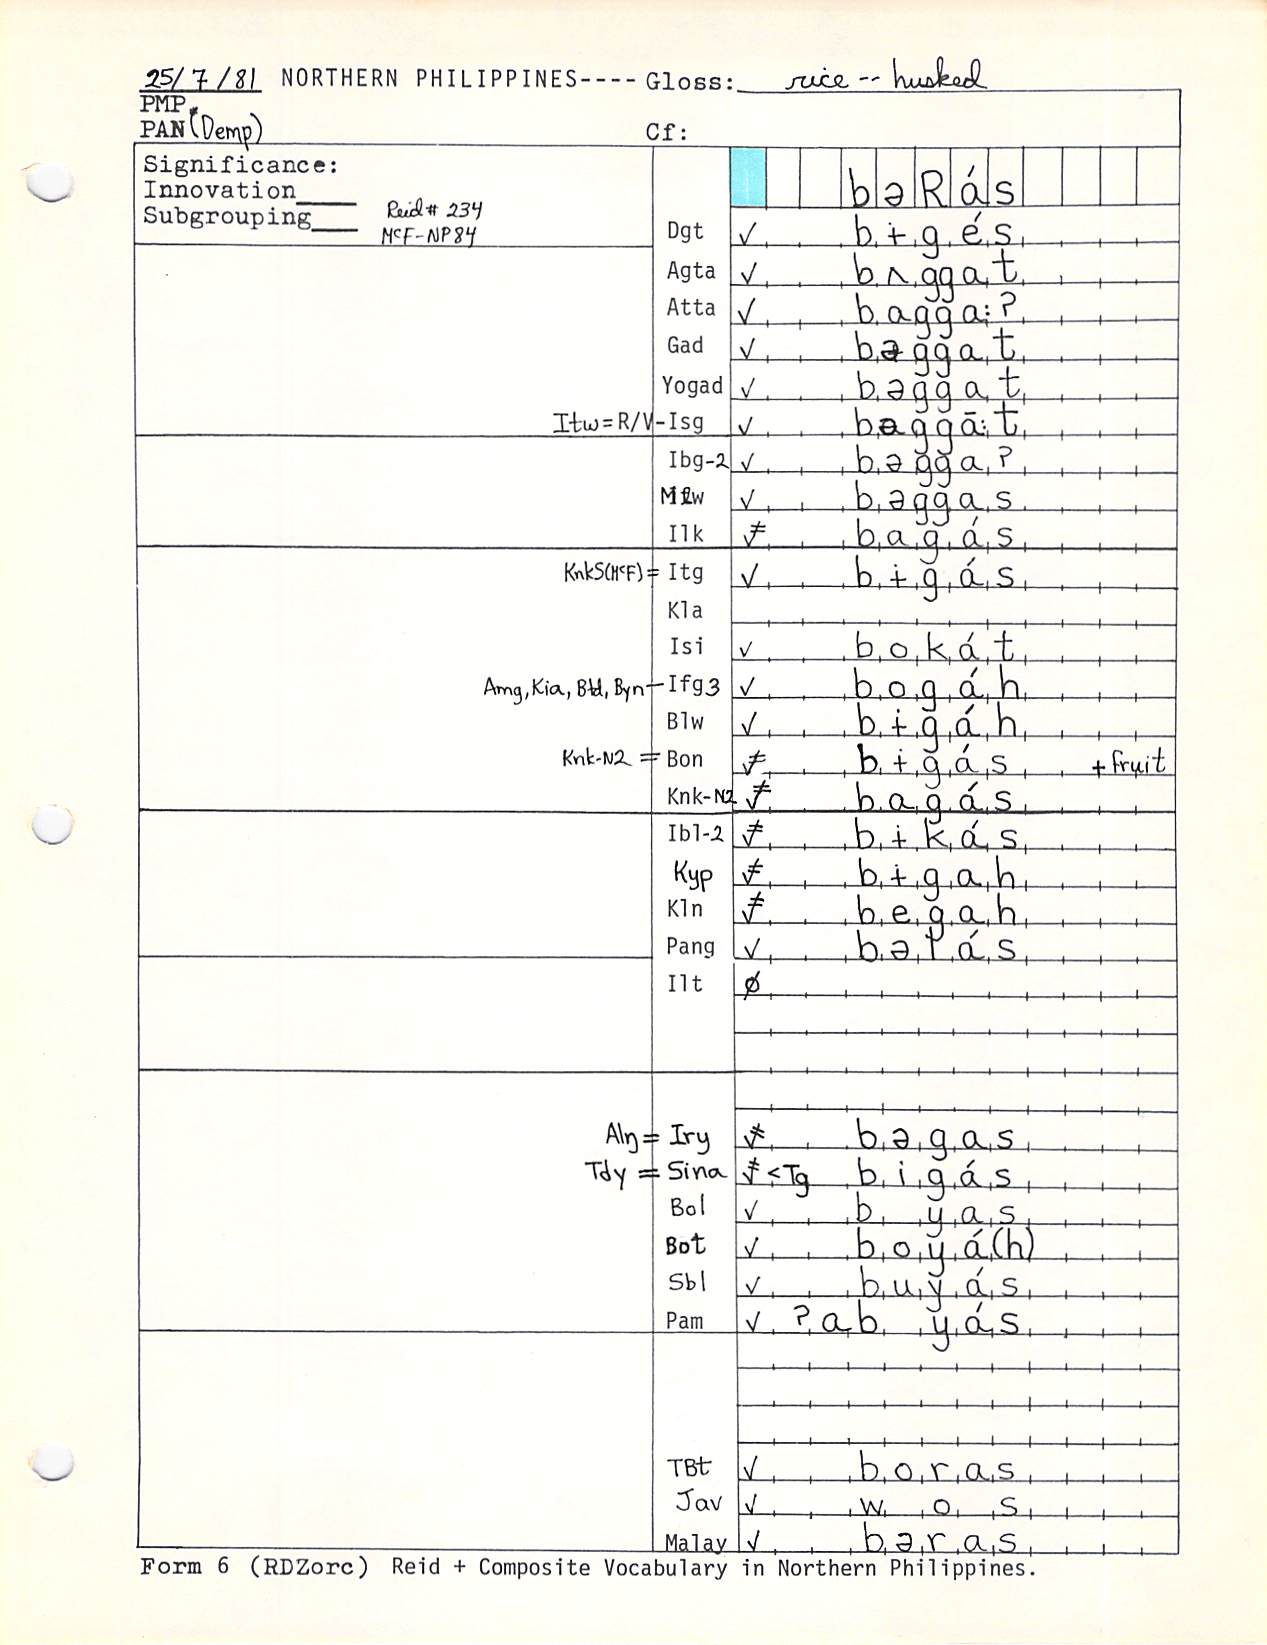 25/7/81 NORTHERN PHILIPPINES---- Gloss: rice -- husked
PMP
PAN (Demp) Cf:
Significance:
Innovation____
Subgrouping___ Reid# 234
McF-NP84
bəRás
Dgt ✓ bɨgés
Agta ✓ bʌggat
Atta ✓ bagga:ʔ
Gad ✓ bəggat
Yogad ✓ bəggat
Itw=R/V-Isg ✓ bəggā:t
Ibg-2 ✓ bəggaʔ
Mlw ✓ bəggas
Ilk ≠ bagás
KnkS(McF)= Itg ✓ bɨgás
Kla
Isi ✓ bokát
Amg, Kia, Btd, Byn-Ifg3 ✓ bogáh
Blw ✓ bɨgáh
Knk-N2 = Bon ≠ bɨgás + fruit
Knk-N2 ≠ bagás
Ibl-2 ≠ bɨkás
Kyp ≠ bɨgah
Kln ≠ begah
Pang ✓ bəlás
Ilt ∅
Aln= Iry ≠ bəgas
Tdy = Sina ≠ <Tg bigás
Bol ✓ b yas
Bot ✓ boyá(h)
Sbl ✓ buyás
Pam ✓ ʔab yás
TBt ✓ boras
Jav ✓ w o s
Malay ✓ bəras
Form 6 (RDZorc) Reid + Composite Vocabulary in Northern Philippines.